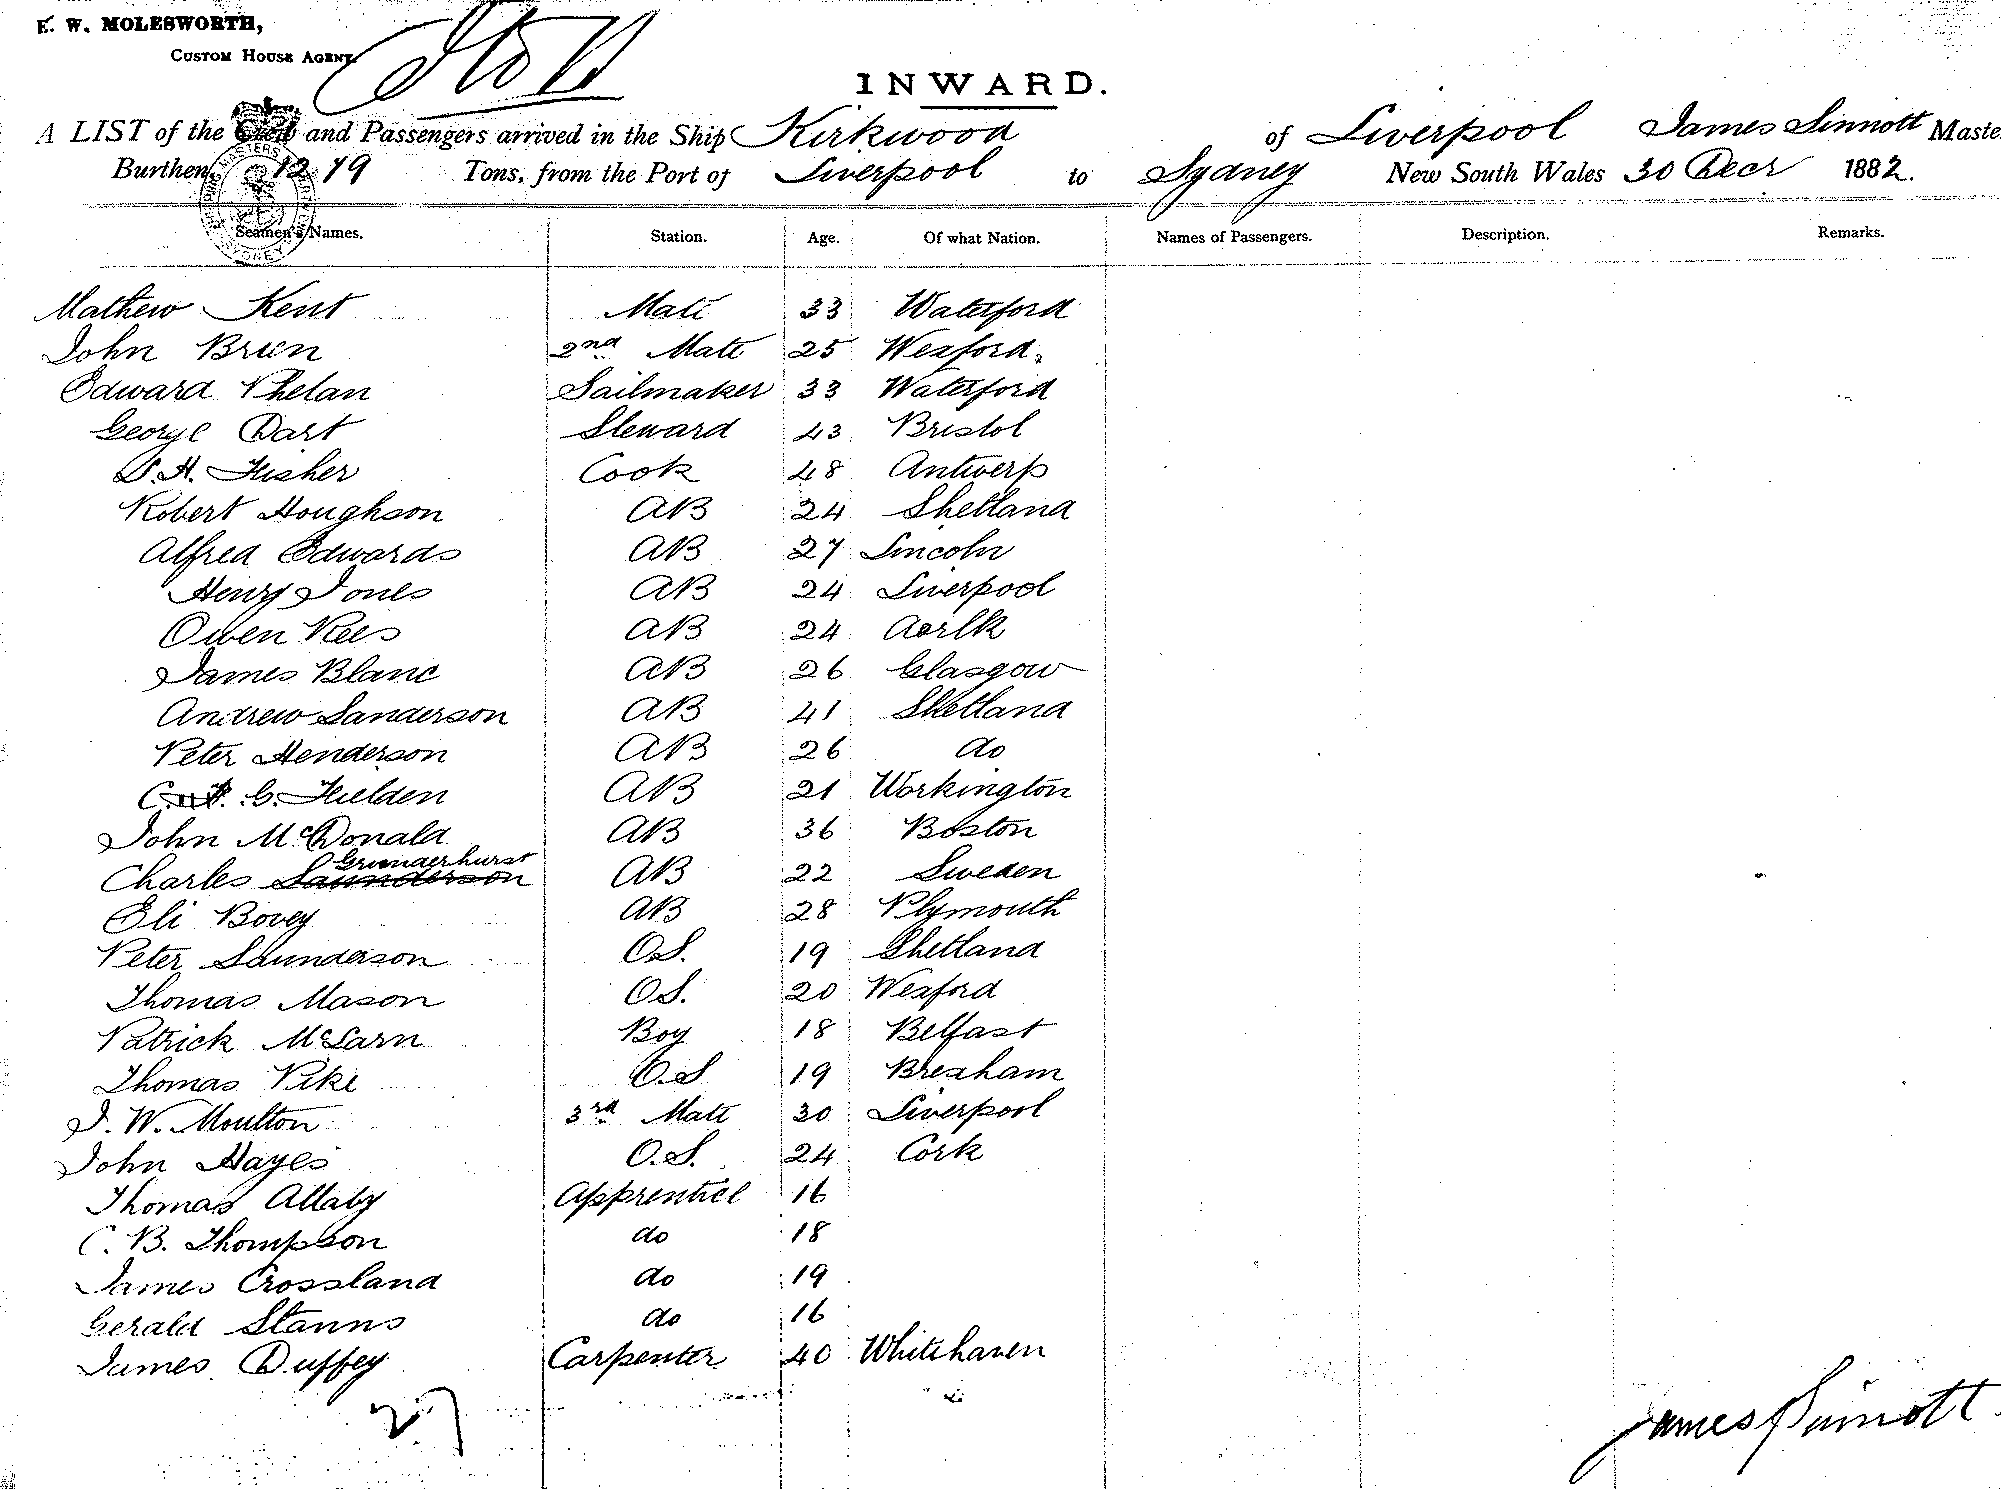 E. W. MOLESWORTH,
CUSTOM HOUSE AGENT
INWARD.
A LIST of the Crew and Passengers arrived in the Ship Kirkwood of Liverpool James Sinnott Maste
Burthen, 1279 Tons, from the Port of Liverpool to Sydney New South Wales 30 Decr 1882.
Seamen's Names. Station. Age. Of what Nation. Names of Passengers. Description. Remarks.
Mathew Kent Mate 33 Waterford
John Brien 2nd Mate 25 Wexford
Edward Phelan Sailmaker 33 Waterford
George Dart Steward 43 Bristol
P. H. Fisher Cook 48 Antwerp
Robert Houghson AB 24 Shetland
Alfred Edwards AB 27 Lincoln
Henry Jones AB 24 Liverpool
Owen Rees AB 24
James Blanc AB 26 Glasgow
Andrew Sanderson AB 41 Shetland
Peter Henderson AB 26 do
C. G. Fielden AB 21 Workington
John McDonald AB 36 Boston
Grunderhurst
Charles Saunderson AB 22 Sweden
Eli Bovey AB 28 Plymouth
Peter Saunderson O.S. 19 Shetland
Thomas Mason O.S. 20 Wexford
Patrick McLarn Boy 18 Belfast
Thomas Pike O.S 19 Brexham
J. W. Moulton 3rd Mate 30 Liverpool
John Hayes O.S. 24 Cork
Thomas Allaby Apprentice 16
C. B. Thompson do 18
James Crossland do 19
Gerald Stanns do 16
James Duffey Carpenter 40 Whitehaven
27
James Sinnott